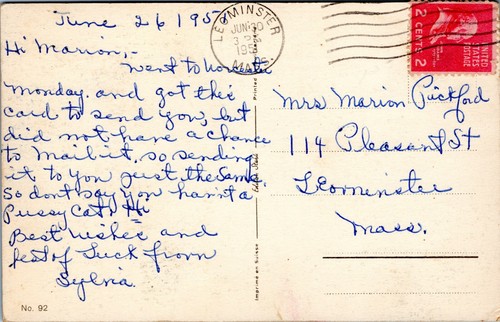 June 26 195
Hi Marion,-
Went to
Monday. and got this
card to send you, but
did not have a chance
to mail it, so sending
it to you just the same
So don't say you haint a
Pussy Cat. Hi
Best wishes and
best of Luck from
Sylvia.
No. 92
LEOMINSTER
JUN 30
3 PM
195
MASS.
UNITED
STATES
POSTAGE
2 CENTS 2
Mrs Marion Pickford
114 Pleasant St
Leominster
Mass.
Printed
Imprimé en Suisse